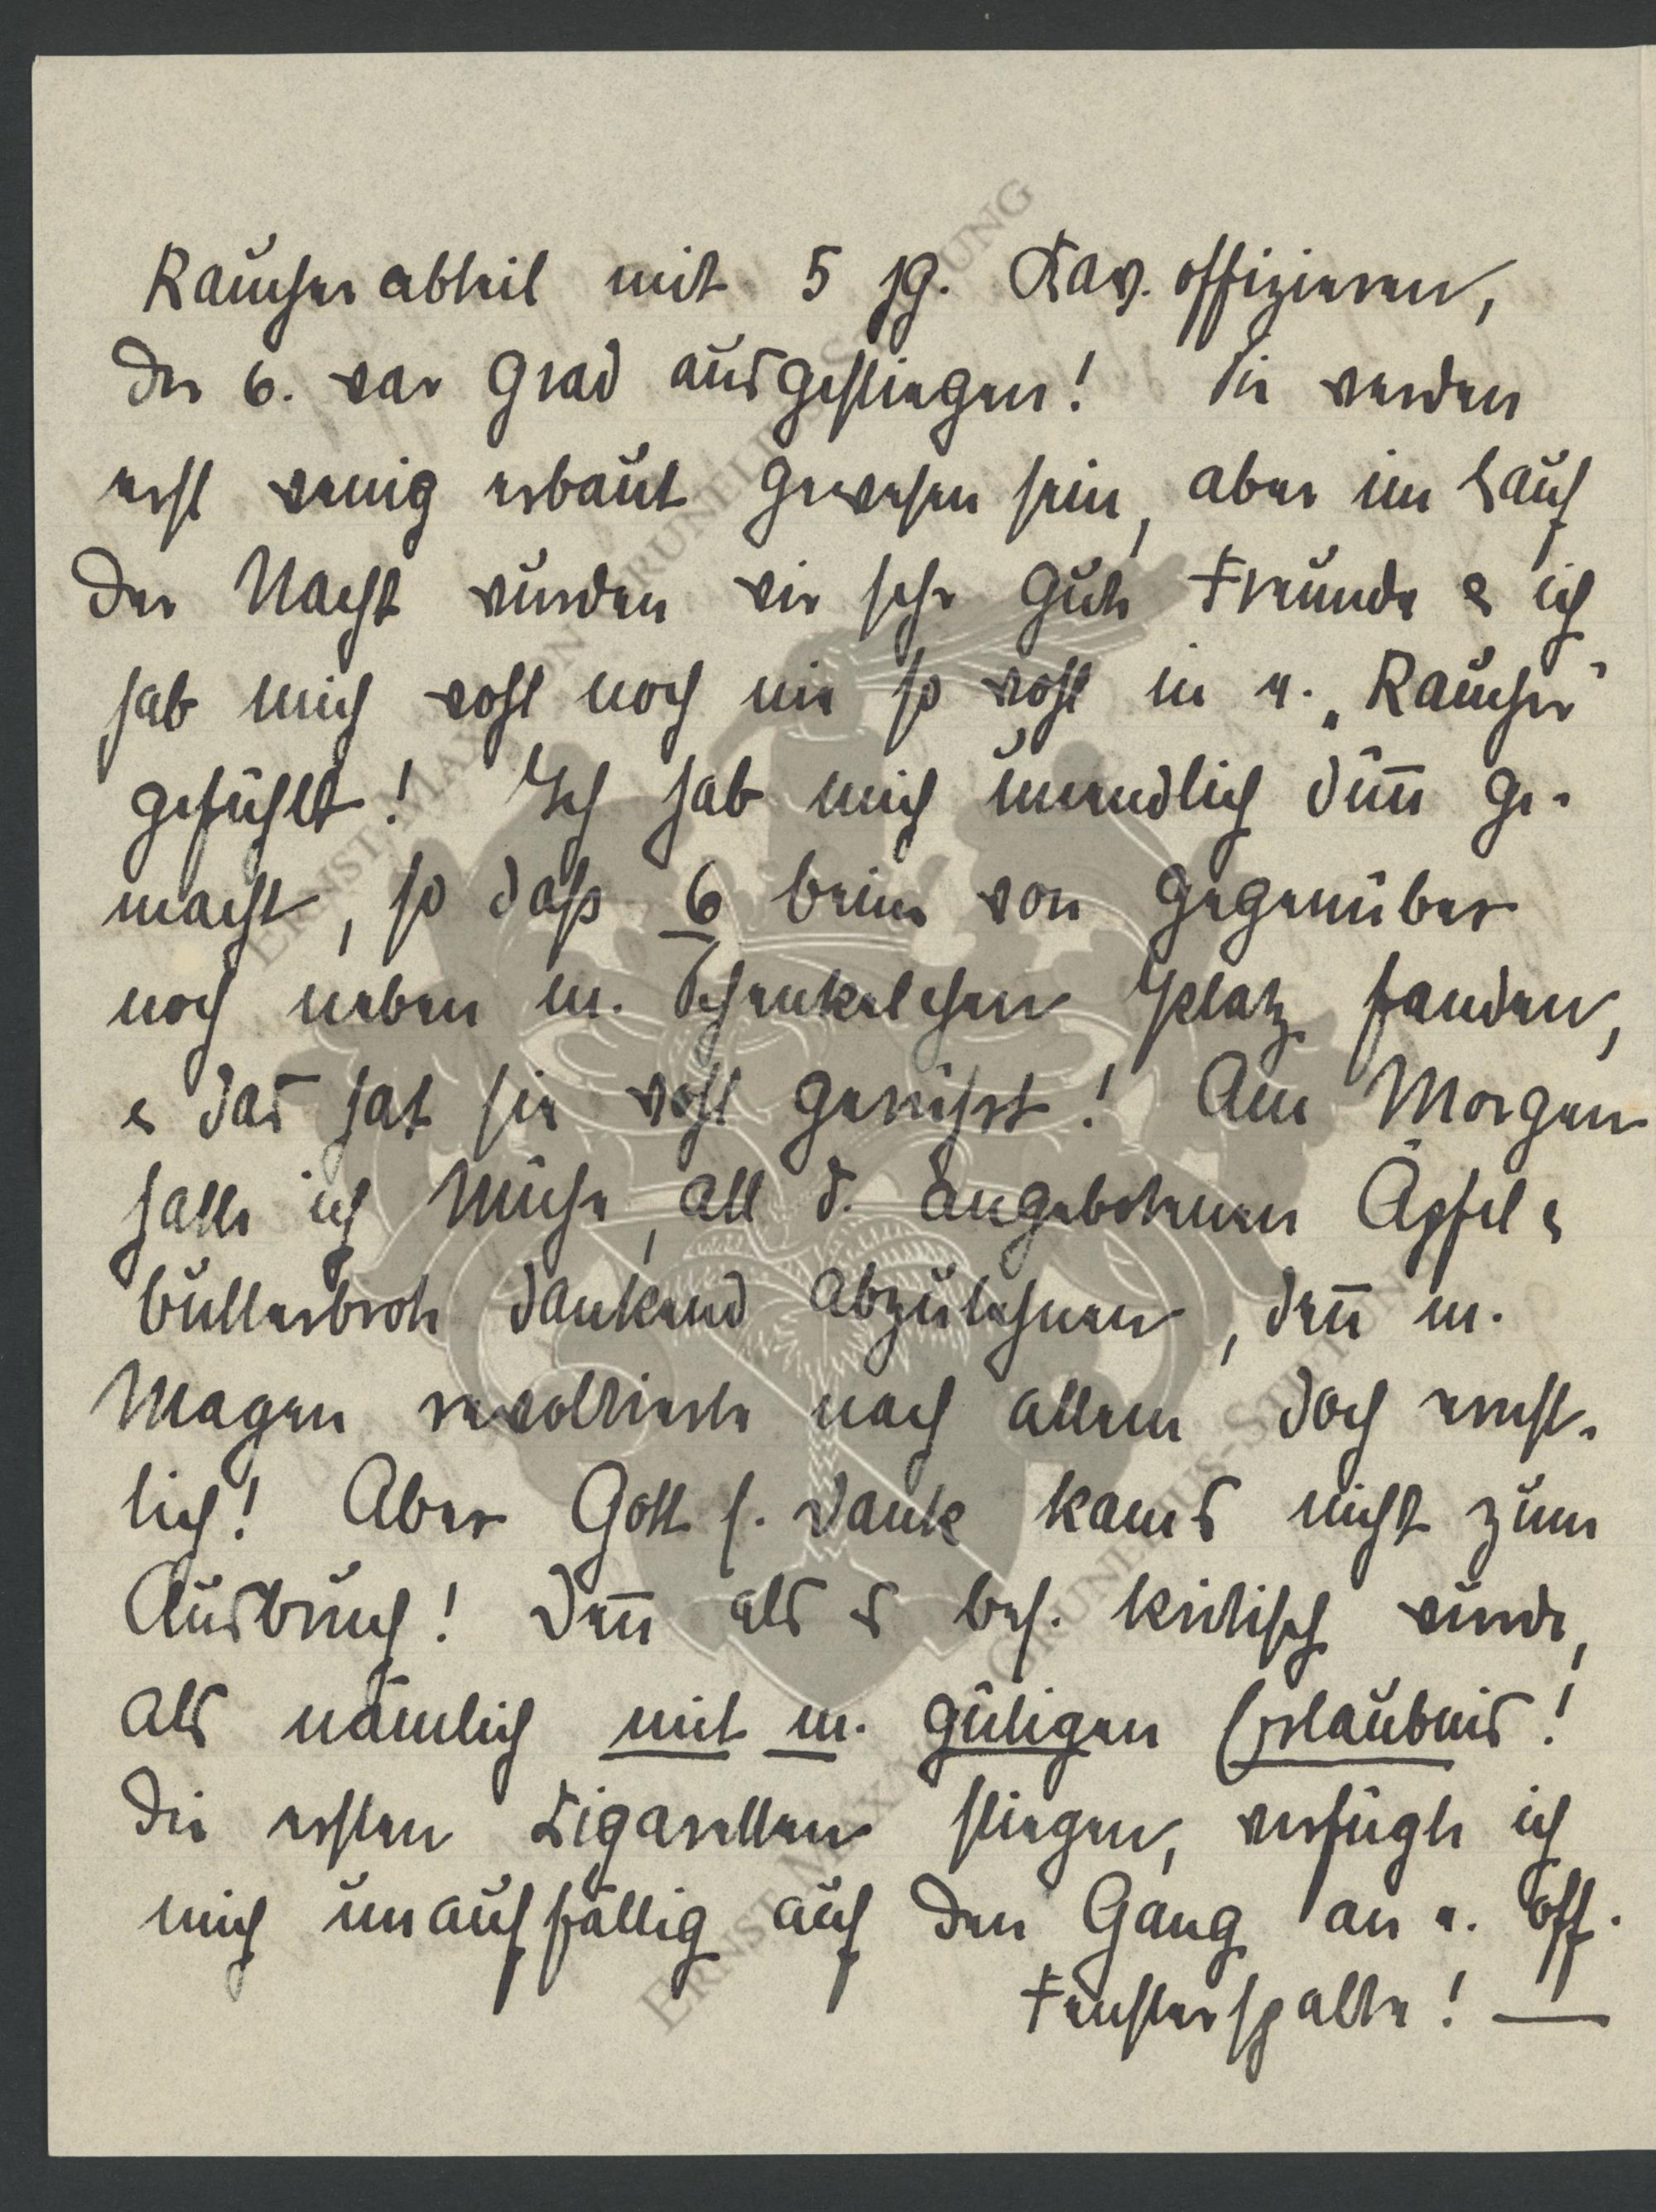 Raucherabteil mit 5 jg. Kav. offizieren,
der 6. war grad ausgestiegen! Sie werden
erst wenig erbaut gewesen sein, aber im Lauf
der Nacht wurden wir sehr gute Freunde & ich
hab mich wohl noch nie so wohl in e. „Raucher“
gefühlt! Ich hab mich unendlich dün̄ ge-
macht, so daß 6 beine von gegenüber
noch neben m. Schenkelchen Platz fanden,
& das hat sie wohl gerührt! Am Morgen
hatte ich Mühe, all d. angebotenen Äpfel &
butterbrote dankend abzulehnen, den̄ m.
Magen revoltierte nach allem doch ernst-
lich! Aber Gott s. Dank kams nicht zum
Ausbruch! Den̄ als es bes. kritisch wurde,
als nämlich mit m. gütigen Erlaubnis!
die ersten Zigaretten stiegen, verfügte ich
mich unauffällig auf den Gang an e. off.
Fensterspalte! —
ERNST MAX VON GRUNELIUS-STIFTUNG
ERNST MAX VON GRUNELIUS-STIFTUNG